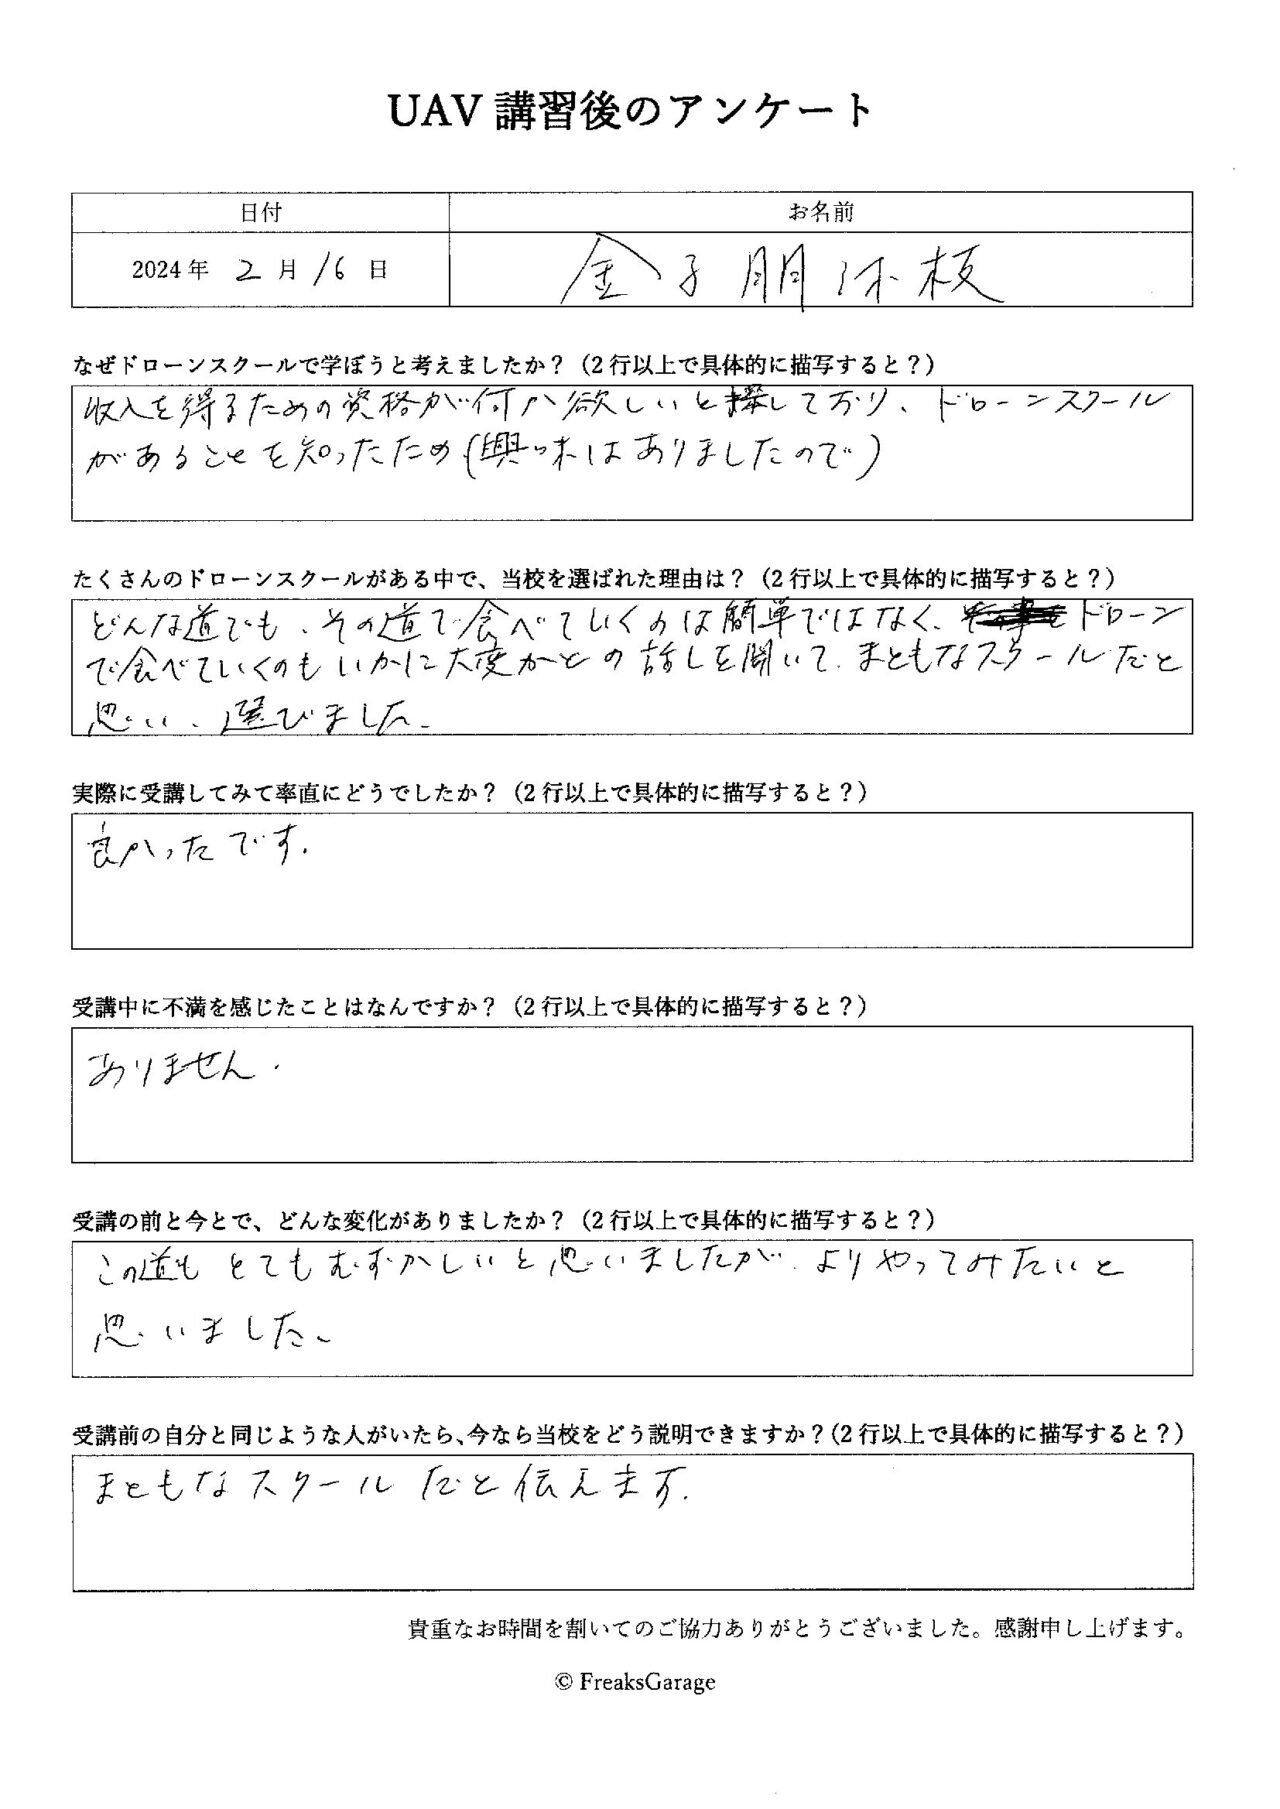 UAV 講習後のアンケート
日付 お名前
2024年 2月16日 金子朋
なぜドローンスクールで学ぼうと考えましたか？（2行以上で具体的に描写すると？）
収入を得るための資格が何か欲しいと探しており、ドローンスクール
があることを知ったため(興味はありましたので)
たくさんのドローンスクールがある中で、当校を選ばれた理由は？（2行以上で具体的に描写すると？）
どんな道でも、その道で食べていくのは簡単ではなく、ドローン
で食べていくのもいかに大変かとの話しを聞いて、まともなスクールだと
思い、選びました。
実際に受講してみて率直にどうでしたか？（2行以上で具体的に描写すると？）
良かったです.
受講中に不満を感じたことはなんですか？（2行以上で具体的に描写すると？）
ありません.
受講の前と今とで、どんな変化がありましたか？（2行以上で具体的に描写すると？）
この道もとてもむずかしいと思いましたが、よりやってみたいと
思いました、
受講前の自分と同じような人がいたら、今なら当校をどう説明できますか？（2行以上で具体的に描写すると？）
まともなスクールだと伝えます.
貴重なお時間を割いてのご協力ありがとうございました。感謝申し上げます。
© FreaksGarage